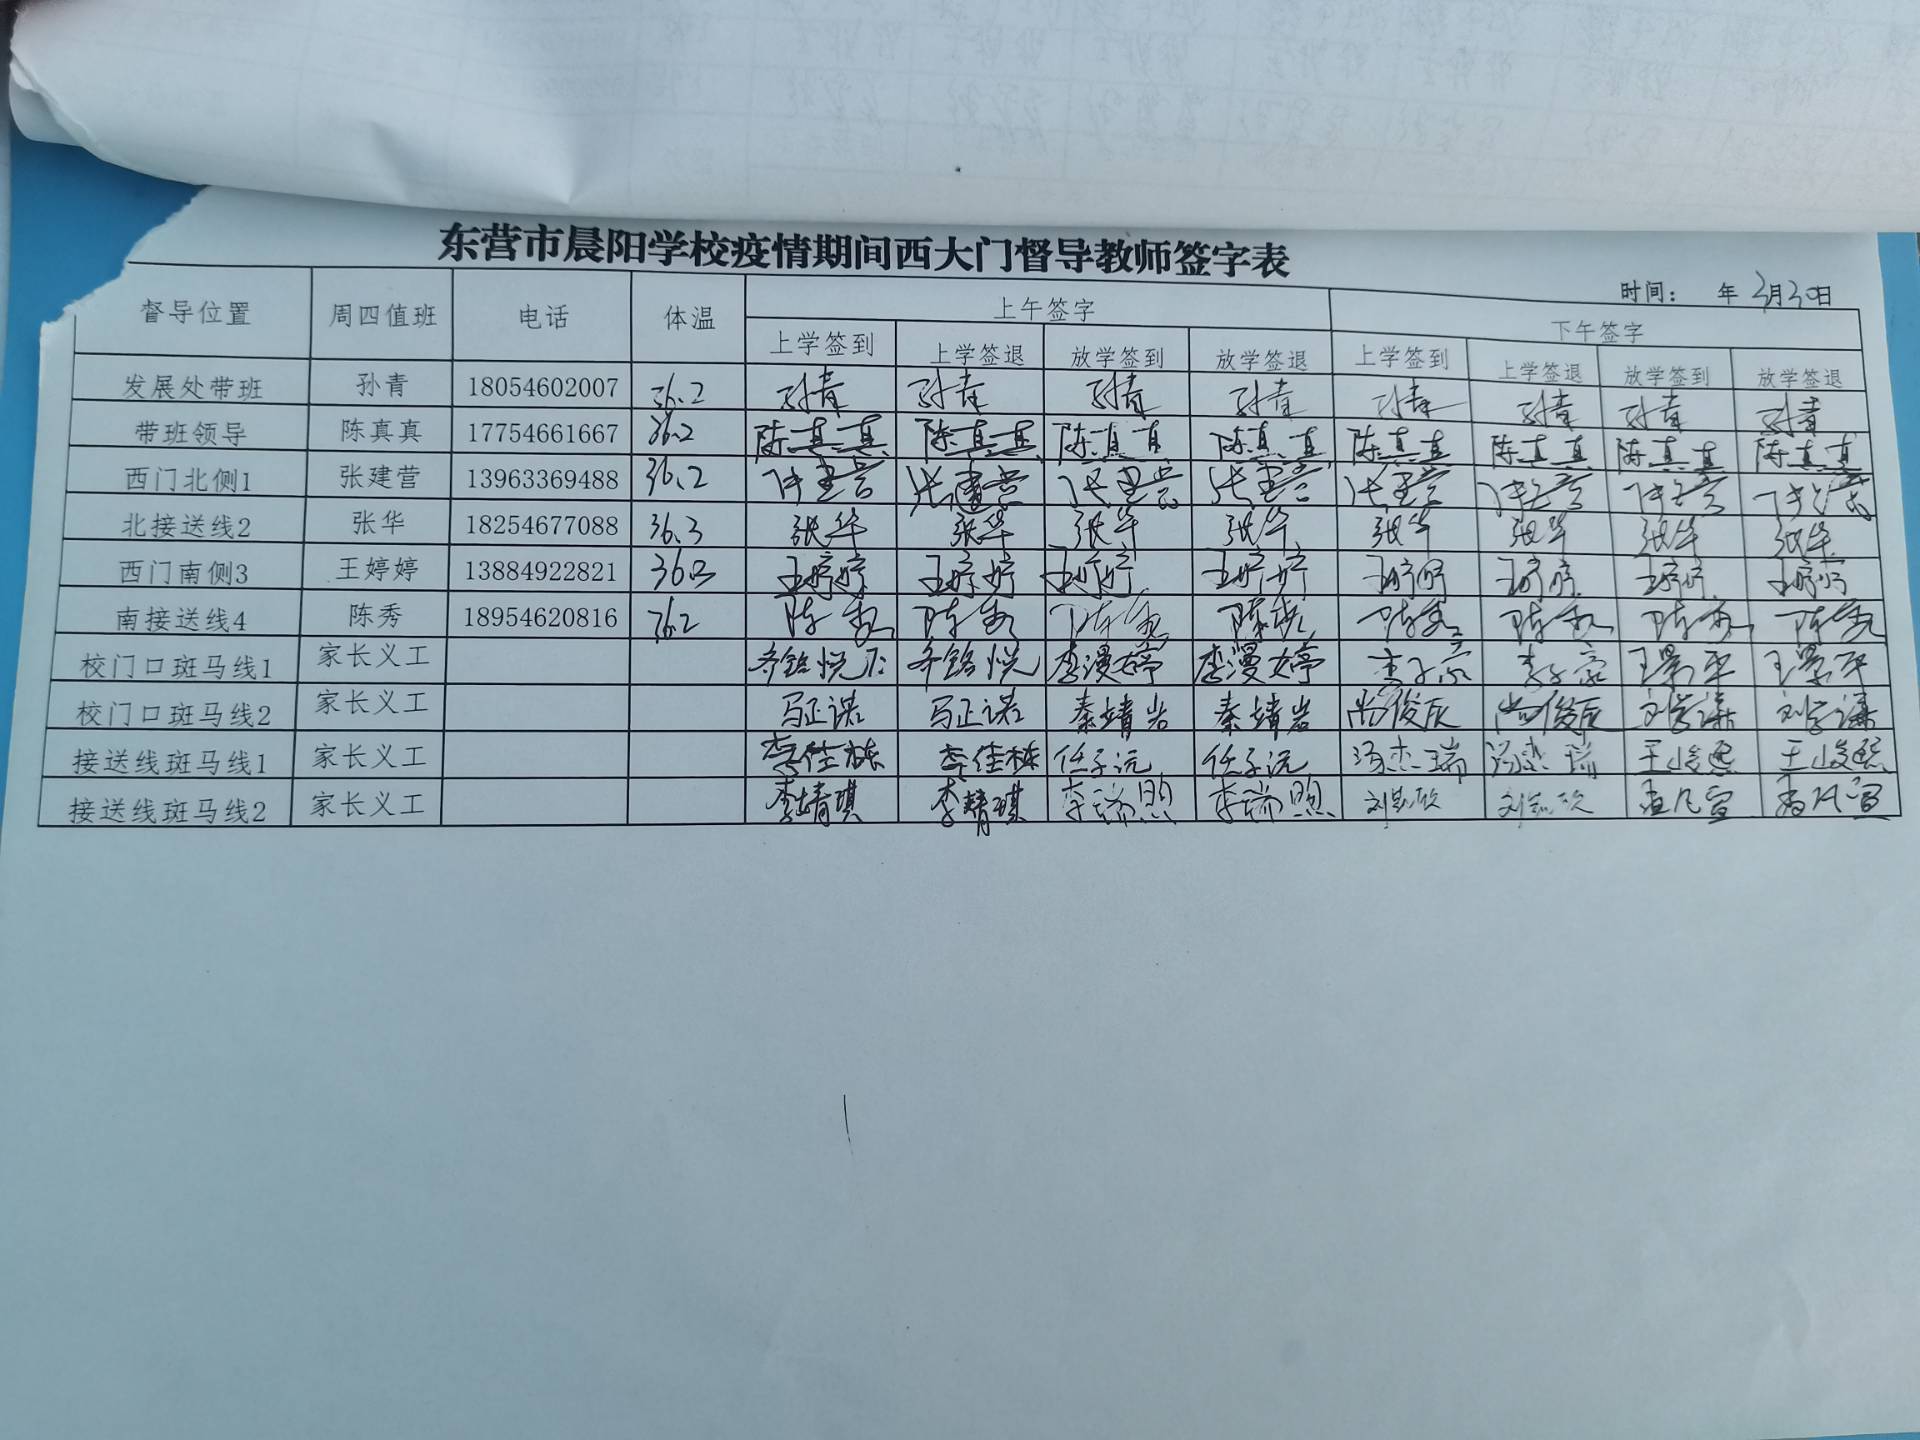 东营市晨阳学校疫情期间西大门督导教师签字表
时间： 年 3月30日
督导位置 周四值班 电话 体温 上午签字 下午签字
上学签到 上学签退 放学签到 放学签退 上学签到 上学签退 放学签到 放学签退
发展处带班 孙青 18054602007 36.2 孙青 孙青 孙青 孙青 孙青 孙青 孙青 孙青
带班领导 陈真真 17754661667 36.2 陈真真 陈真真 陈真真 陈真真 陈真真 陈真真 陈真真 陈真真
西门北侧1 张建营 13963369488 36.2 张建营 张建营 张建营 张建营 张建营 张建营 张建营 张建营
北接送线2 张华 18254677088 36.3 张华 张华 张华 张华 张华 张华 张华 张华
西门南侧3 王婷婷 13884922821 王婷婷 王婷婷 王婷婷 王婷婷 王婷婷 王婷婷 王婷婷 王婷婷
南接送线4 陈秀 18954620816 36.2 陈秀 陈秀 陈秀 陈秀 陈秀 陈秀 陈秀 陈秀
校门口斑马线1 家长义工 李漫婷 李漫婷
校门口斑马线2 家长义工 马正诺 马正诺 秦靖岩 秦靖岩 尚俊辰 尚俊辰
接送线斑马线1 家长义工 李佳栋 李佳栋 任子沅 任子沅 汤杰瑞 汤杰瑞 王峻熙 王峻熙
接送线斑马线2 家长义工 李靖琪 李靖琪 李瑞煦 李瑞煦